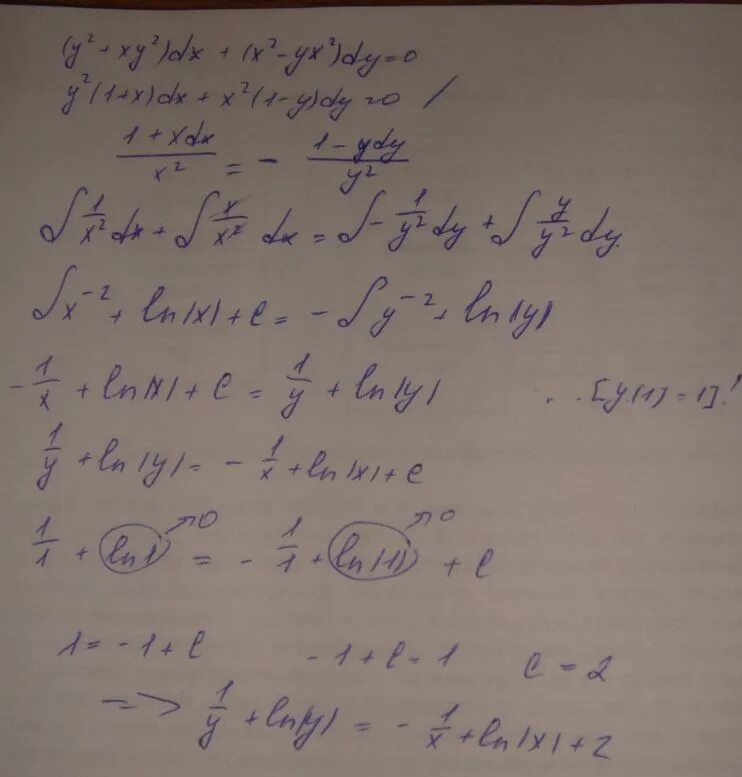 (y² + xy²)dx + (x² - yx²)dy = 0
y²(1+x)dx + x²(1-y)dy = 0 /
1 + xdx / x² = - 1 - ydy / y²
∫ 1/x² dx + ∫ x/x² dx = ∫ - 1/y² dy + ∫ y/y² dy
∫ x⁻² + ln|x| + C = - ∫ y⁻² + ln|y|
- 1/x + ln|x| + C = 1/y + ln|y| . . [y(1) = 1]!
1/y + ln|y| = - 1/x + ln|x| + C
1/1 + ln1 →0 = - 1/1 + ln|1| →0 + C
1 = -1 + C -1 + C = 1 C = 2
=> 1/y + ln|y| = - 1/x + ln|x| + 2